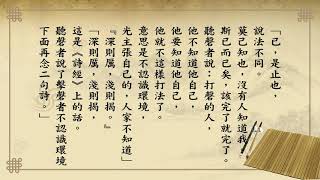 「已，是止也，
說法不同。
莫己知也，沒有人知道我，
斯己而已矣，該完了就完了。
聽聲者說：打聲的人，
他不知道他自己，
他要知道他自己，
他就不這樣打法了。
意思是不認識環境，
光主張自己的，人家不知道」
『深則厲，淺則揭。』
「深則厲，淺則揭，
這是《詩經》上的話。
聽聲者說了擊聲者不認識環境，
下面再念二句詩。」